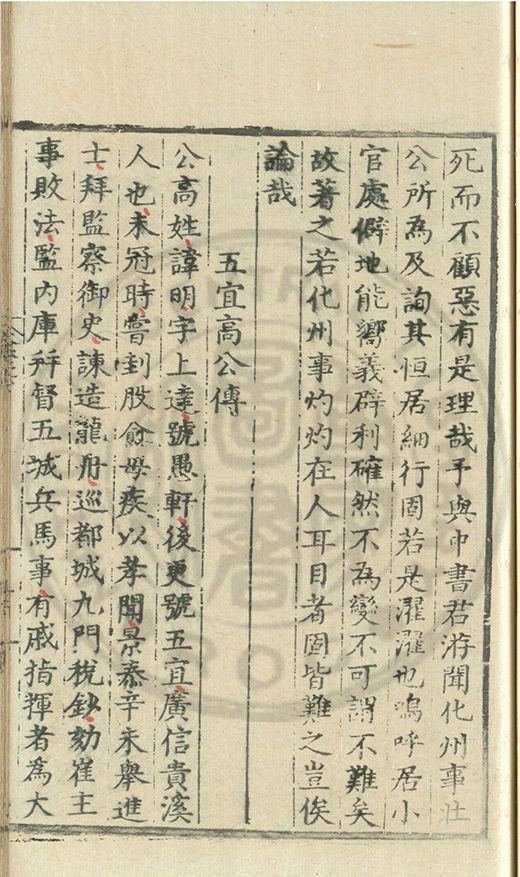 死而不顧惡有是理哉予與中書君游聞化州事壯
公所為及詢其恒居細行固若是濯濯也嗚呼居小
官處僻地能嚮義辟利確然不為變不可謂不難矣
故著之若化州事灼灼在人耳目者固皆難之豈俟
論哉
五宜高公傳
公高姓諱明字上達號愚軒後更號五宜廣信貴溪
人也未冠時嘗刲股愈母疾以孝聞景泰辛未舉進
士拜監察御史諫造龍舟巡都城九門稅鈔劾崔主
事敗法監內庫幷督五城兵馬事有戚指揮者為大